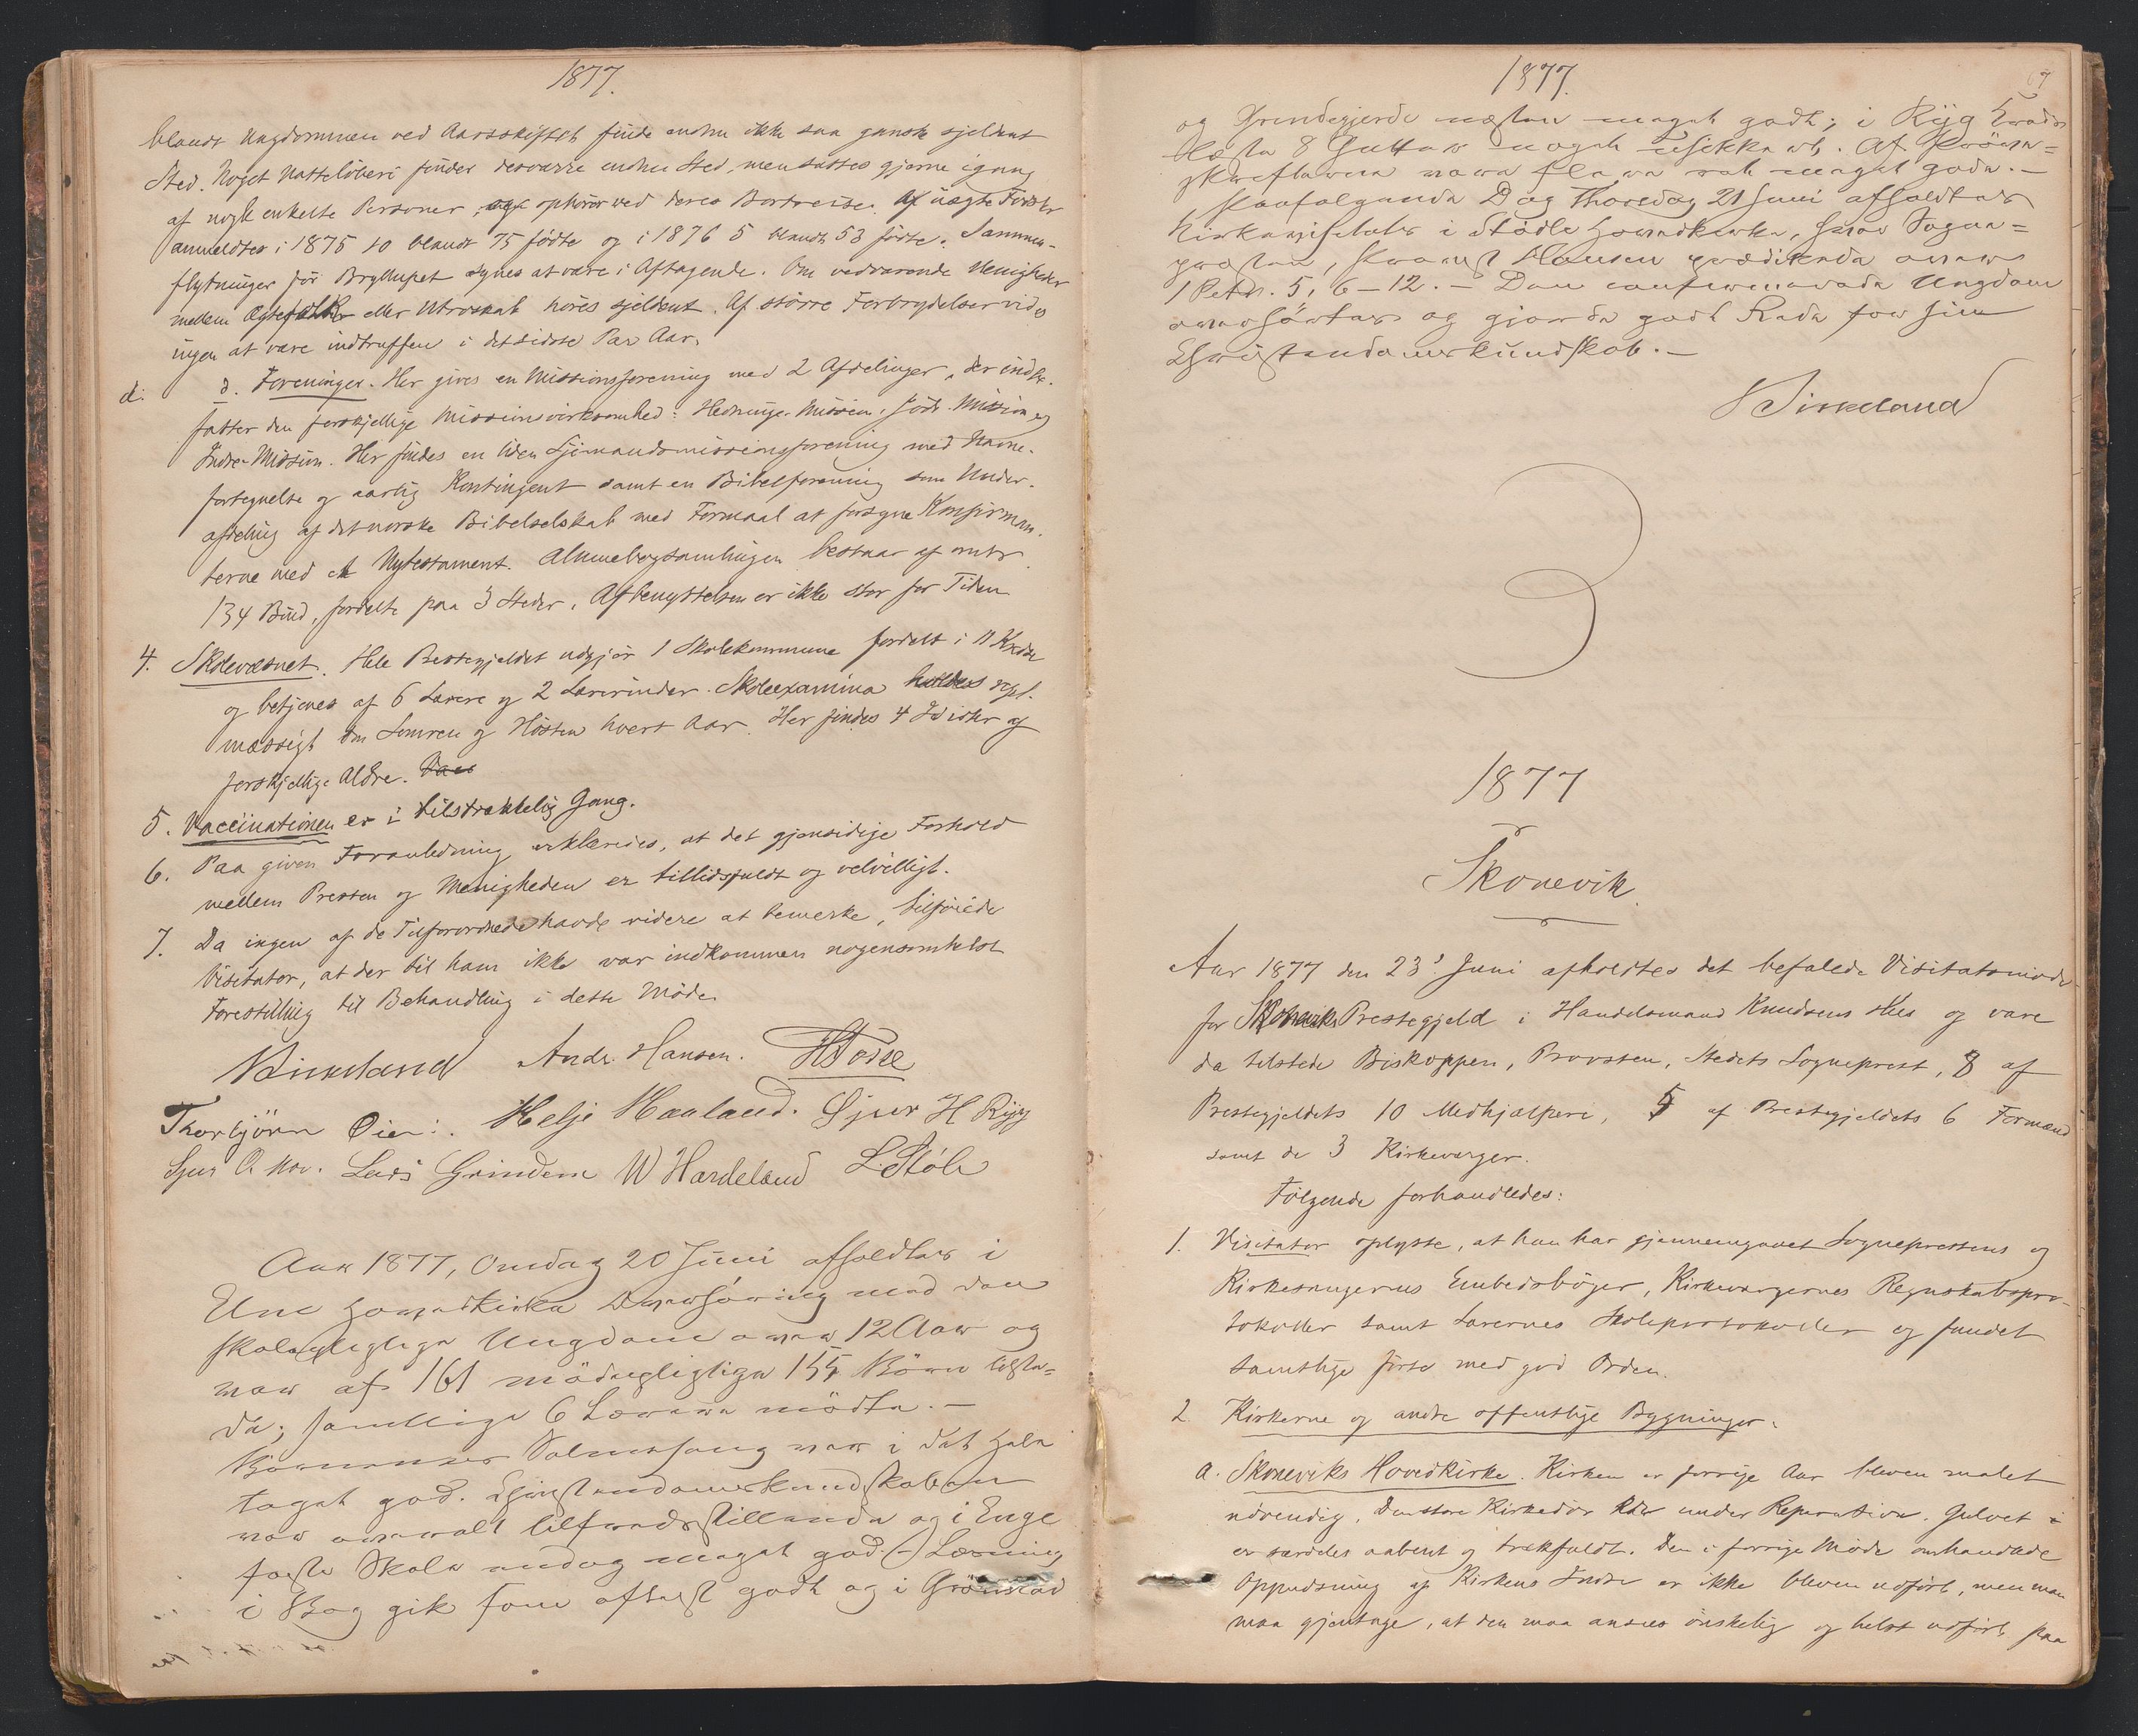 1877.
blandt Ungdommen ved Aarsskiftet finde endnu ikke saa ganske sjeldent
Sted. Noget Natteløberi finder desværre endnu Sted, men sættes gjerne igang
af nogle enkelte Personer, og ophører ved deres Bortreise. Af uægte Fødsler
anmeldtes i 1875 10 blandt 75 fødte og i 1876 5 blandt 53 fødte. Sammen-
flytninger før Bryllupet synes at være i Aftagende. Om vedvarende Uenigheder
mellem Ægtefolk eller Utroskab høres sjeldent. Af større Forbrydelser vides
ingen at være indtruffen i det sidste Par Aar.
d. d. Foreninger. Her gives en Missionsforening med 2 Afdelinger, der indbe-
fatter den forskjellige Missionsvirksomhed: Hedninge-Mission, Jøde-Mission og
Indre-Mission. Her findes en liden Sjømandsmissionsforening med Navne-
fortegnelse og aarlig Kontingent samt en Bibelforening som Under-
afdeling af det norske Bibelselskab med Formaal at forsyne Konfirman-
terne med et Nytestament. Almuebogsamlingen bestaar af omtr.
134 Bind, fordelte paa 3 Steder. Afbenyttelsen er ikke stor for Tiden
4. Skolevæsnet. Hele Prestegjeldet udgjør 1 Skolekommune fordelt i 11 Kredse
og betjenes af 6 Lærere og 2 Lærerinder. Skoleexamina holdes regel-
mæssigt om Somren og Høsten hvert Aar. Her findes 4 Idioter af
forskjellige Aldre. Vacc
5. Vaccinationen er i tilstrækkelig Gang.
6. Paa given Foranledning erklæredes, at det gjensidige Forhold
mellem Presten og Menigheden er tillidsfuldt og velvilligt.
7. Da ingen af de Tilforordnede havde videre at bemerke, tilføiede
Visitator, at der til ham ikke var indkommen nogensomhelst
Forestilling til Behandling i dette Møde.
Birkeland Andr. Hansen.
Thorbjørn Øien. Helje Haaland. Sjur H Ryg
Sjur O. Mo. Lars Grindem W Hardeland L. Støle
Aar 1877, Onsdag 20 Juni afholdtes i
Etne Hovedkirke Overhøring med den
skolepligtige Ungdom over 12 Aar og
var af 161 mødepligtige 155 Børn tilste-
de; samtlige 6 Lærere mødte.—
Børnenes Salmesang var i det hele
taget god. Christendomskundskaben
var overalt tilfredsstillende og i Enge
faste Skole endog meget god.(—) Læsning
i Bog gik som oftest godt og i Grønstad
1877. 67
og Grindegjerde næsten meget godt; i Ryg Kreds
læste 8 Gutter noget usikkert. Af Prøve-
skrifterne vare flere ret meget gode.—
Paafølgende Dag Thorsdag 21 Juni afholdtes
Kirkevisitats i Stødle Hovedkirke, hvor Sogne-
presten, Provst Hansen prædikede over
1 Petr. 5, 6–12.— Den confirmerede Ungdom
overhørtes og gjorde godt Rede for sin
Christendomskundskab.—
Birkeland
1877
Skonevik.
Aar 1877 den 23' Juni afholdtes det befalede Visitatsmøde
for Skoneviks Prestegjeld i Handelsmand Knudsens Hus og vare
da tilstede Biskoppen, Provsten, Stedets Sogneprest, 8 af
Prestegjeldets 10 Medhjælpere, 5 af Prestegjeldets 6 Formænd
samt de 3 Kirkeverger.
Følgende forhandledes:
1. Visitator oplyste, at han har gjennemgaaet Sogneprestens og
Kirkesangernes Embedsbøger, Kirkevergernes Regnskabspro-
tokoller samt Lærernes Skoleprotokoller og fundet
samtlige førte med god Orden.
2. Kirkerne og andre offentlige Bygninger.
a. Skoneviks Hovedkirke. Kirken er forrige Aar bleven malet
udvendig. Den store Kirkedør er under Reparation. Gulvet
er særdeles aabent og trækfuldt. Den i forrige Møde omhandlede
Oppudsning af Kirkens Indre er ikke bleven udført, men man
maa gjentage, at den maa ansees ønskelig og helst udført paa